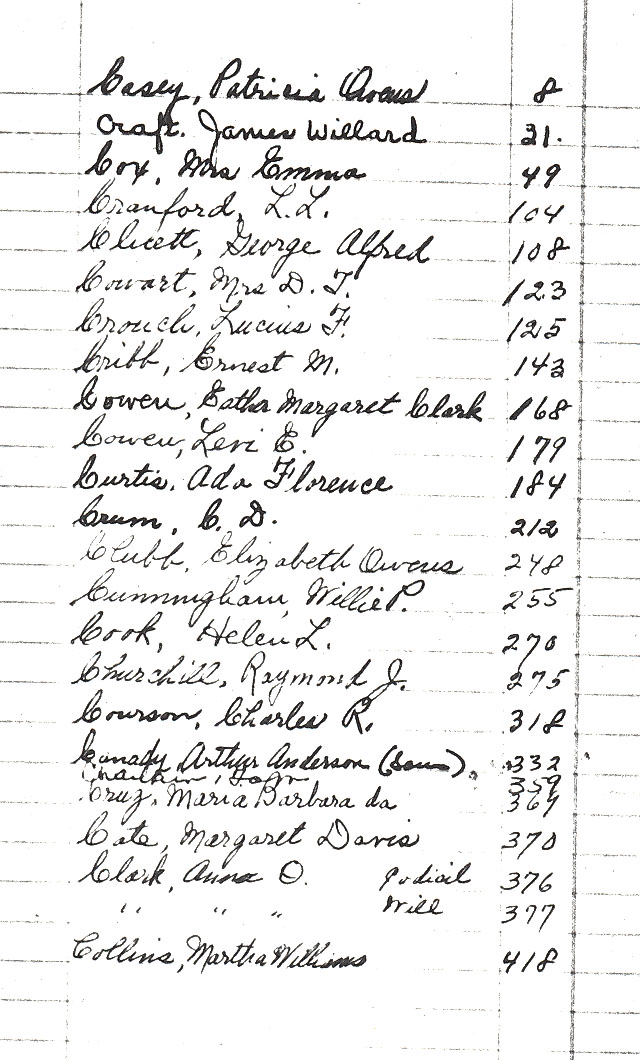 Casey, Patricia Owens 8
Craft. James Willard 31.
Cox, Mrs Emma 49
Cranford, L.L. 104
Clicett, George Alfred 108
Cowart, Mrs D. T. 123
Crouch, Lucius F. 125
Cribb, Ernest M. 143
Cowen, Esther Margaret Clark 168
Cowen, Levi E. 179
Curtis, Ada Florence 184
Crum, C. D. 212
Clubb, Elizabeth Owens 248
Cunningham, Willie P. 255
Cook, Helen L. 270
Churchill, Raymond J. 275
Courson, Charles R. 318
Canady, Arthur Anderson 332
359
Cruz, Maria Barbara da 364
Cate, Margaret Davis 370
Clark, Anna O. Codicil 376
" " " Will 377
Collins, Martha Williams 418